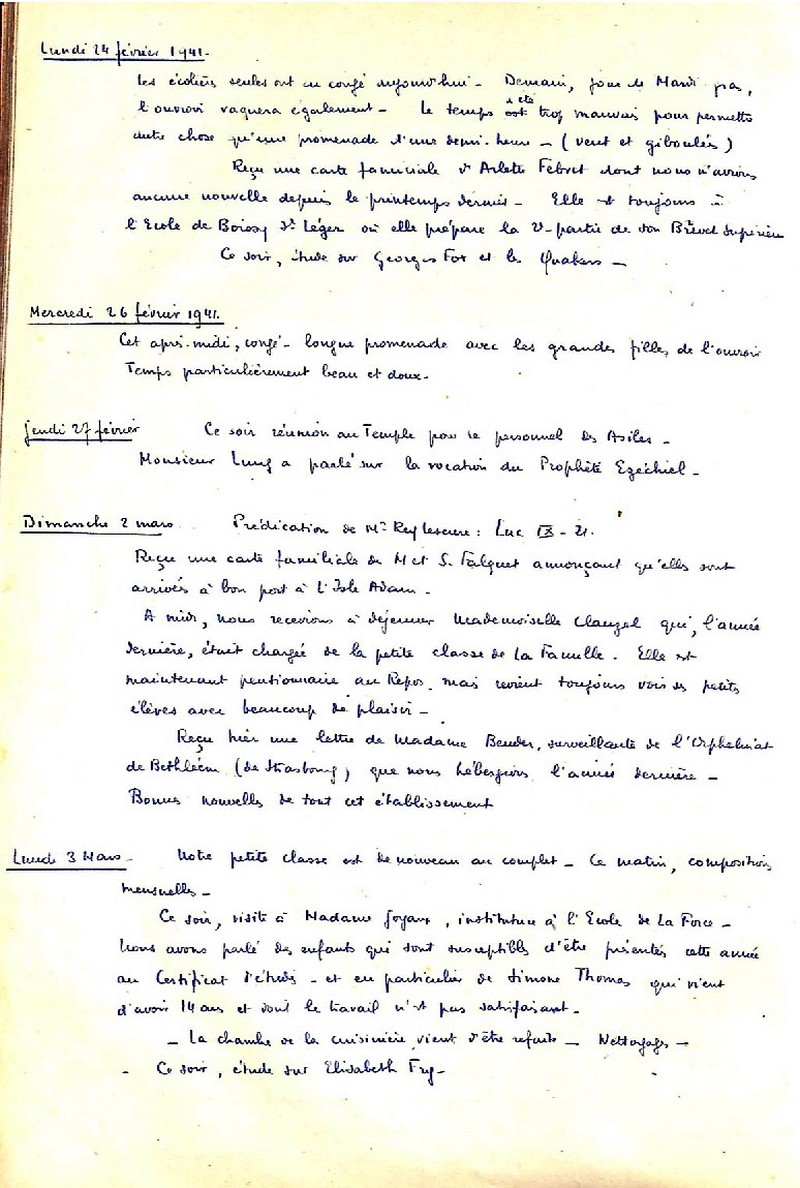 Lundi 24 février 1941.
Les écolières seules ont eu congé aujourd'hui - Demain, jour de Mardi gras,
l'ouvroir vaquera également - Le temps est a été trop mauvais pour permettre
autre chose qu'une promenade d'une demi-heure - (vent et giboulées)
Reçu une carte familiale d'Arlette Febvet dont nous n'avions
aucune nouvelle depuis le printemps dernier - Elle est toujours à
l'Ecole de Boissy St Léger où elle prépare la 2e partie de son Brevet Supérieur
Ce soir, étude sur Georges Fox et les Quakers -
Mercredi 26 février 1941.
Cet après-midi, congé - longue promenade avec les grandes filles de l'ouvroir
Temps particulièrement beau et doux -
Jeudi 27 février Ce soir réunion au Temple pour le personnel des Asiles -
Monsieur Lung a parlé sur la vocation du Prophète Ezéchiel -
Dimanche 2 mars Prédication de Mr Rey Lescure : Luc IX - 21.
Reçu une carte familiale de M et S. Falguet annonçant qu'elles sont
arrivées à bon port à L'Isle Adam -
A midi, nous recevions à déjeuner Mademoiselle Clauzel qui, l'année
dernière, était chargée de la petite classe de La Famille. Elle est
maintenant pensionnaire au Repos, mais revient toujours voir ses petits
élèves avec beaucoup de plaisir -
Reçu hier une lettre de Madame Bender, surveillante de l'Orphelinat
de Bethléem (de Strasbourg) que nous hébergions l'année dernière -
Bonnes nouvelles de tout cet établissement
Lundi 3 Mars - Notre petite classe est de nouveau au complet - Ce matin, compositions
mensuelles -
Ce soir, visite à Madame Joyaux, institutrice à l'Ecole de La Force -
Nous avons parlé des enfants qui sont susceptibles d'être présentés cette année
au Certificat d'études - et en particulier de Simone Thomas qui vient
d'avoir 14 ans et dont le travail n'est pas satisfaisant -
- La chambre de la cuisinière vient d'être refaite - Nettoyages -
- Ce soir, étude sur Elisabeth Fry -